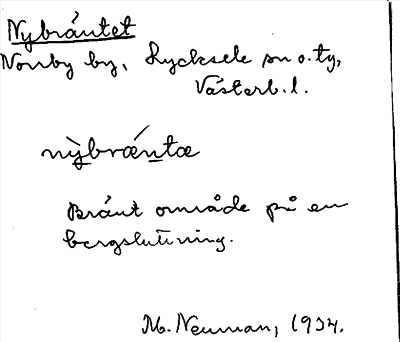 Nybräntet
Norrby by, Lycksele sn o. ty,
Västerb. l.
nỳbrǽntæ
Bränt område på en
bergsluttning.
M. Neuman, 1934.